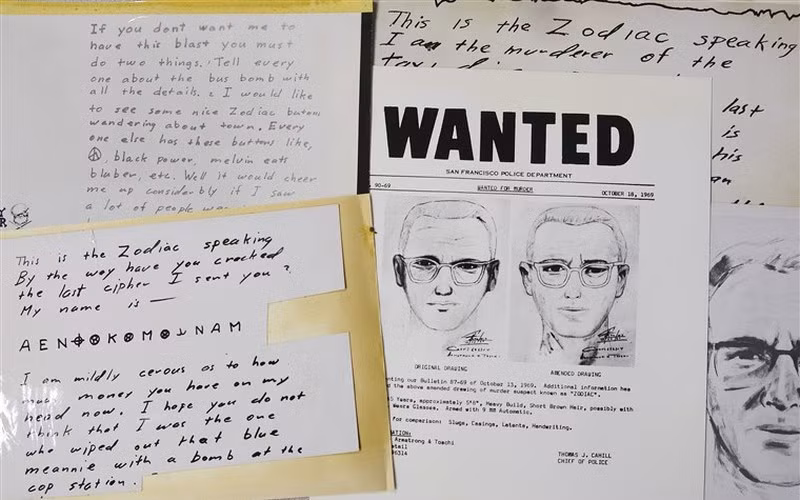 If you dont want me to
have this blast you must
do two things. Tell every
one about the bus bomb with
all the details. I would like
to see some nice Zodiac butons
wandering about town. Every
one else has these buttons like,
☮, black power, melvin eats
bluber, etc. Well it would cheer
me up considerbly if I saw
a lot of people
This is the Zodiac speaking
I am the murderer of the
last
is
his
an
This is the Zodiac speaking
By the way have you cracked
the last cipher I sent you ?
My name is —
A E N ⊕ ⊗ K ⊗ M ⊗ N A M
I am mildly cerous as to how
much money you have on my
head now. I hope you do not
think that I was the one
who wiped out that blue
meannie with a bomb at the
cop station.
WANTED
SAN FRANCISCO POLICE DEPARTMENT
90-69 WANTED FOR MURDER OCTOBER 18, 1969
ORIGINAL DRAWING AMENDED DRAWING
our Bulletin 87-69 of October 13, 1969. Additional information has
the above amended drawing of murder suspect known as "ZODIAC".
Years, approximately 5'8", Heavy Build, Short Brown Hair, possibly with
Wears Glasses. Armed with 9 MM Automatic.
for comparison: Slugs, Casings, Latents, Handwriting.
Armstrong & Toschi
THOMAS J. CAHILL
CHIEF OF POLICE